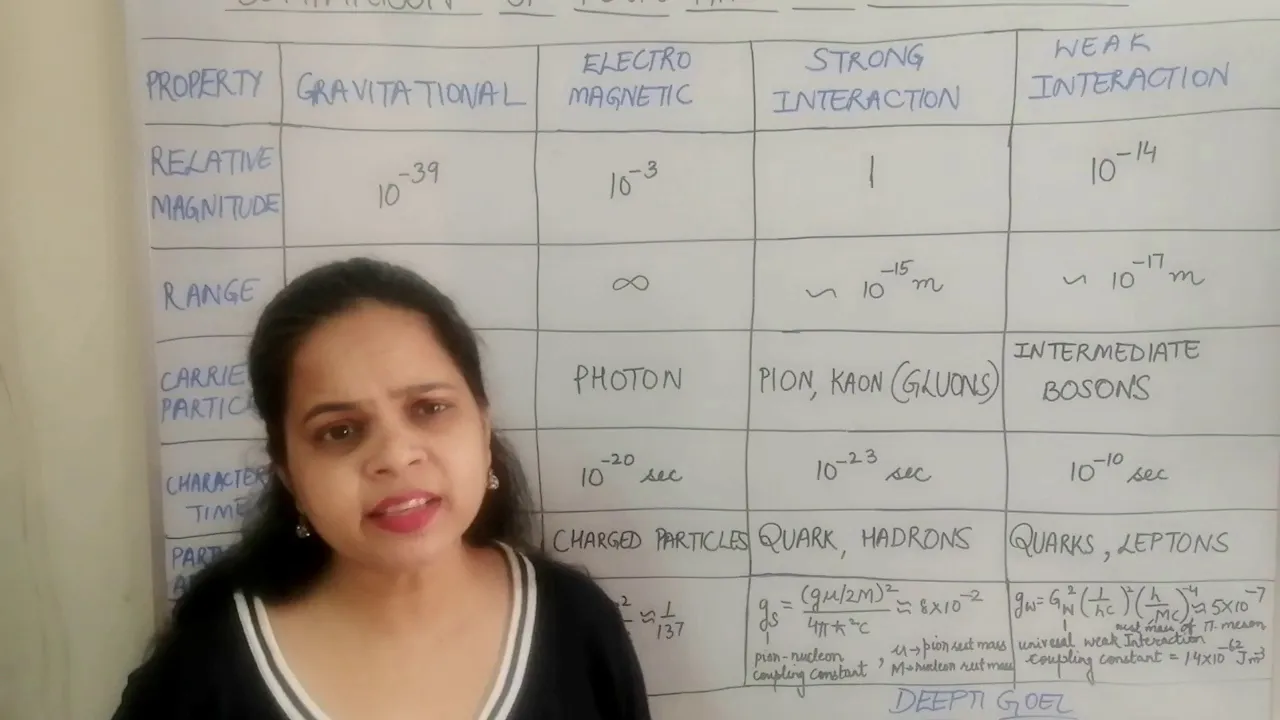 PROPERTY GRAVITATIONAL ELECTRO MAGNETIC STRONG INTERACTION WEAK INTERACTION
RELATIVE MAGNITUDE 10^-39 10^-3 1 10^-14
RANGE ∞ ~ 10^-15 m ~ 10^-17 m
CARRIE PARTIC PHOTON PION, KAON (GLUONS) INTERMEDIATE BOSONS
CHARACTER TIME 10^-20 sec 10^-23 sec 10^-10 sec
PART CHARGED PARTICLES QUARK, HADRONS QUARKS, LEPTONS
2 ≈ 1/137
gs = (gμ/2M)²/4πħ²c ≈ 8×10^-2
pion-nucleon coupling constant, μ→pion rest mass
M→nucleon rest mass
gw = Gw² (1/ħc)² (ħ/Mc)^-4 ≈ 5×10^-7
rest mass of π meson
univesal weak Interaction
coupling constant = 1.4×10^-62 Jm^-3
DEEPTI GOEL